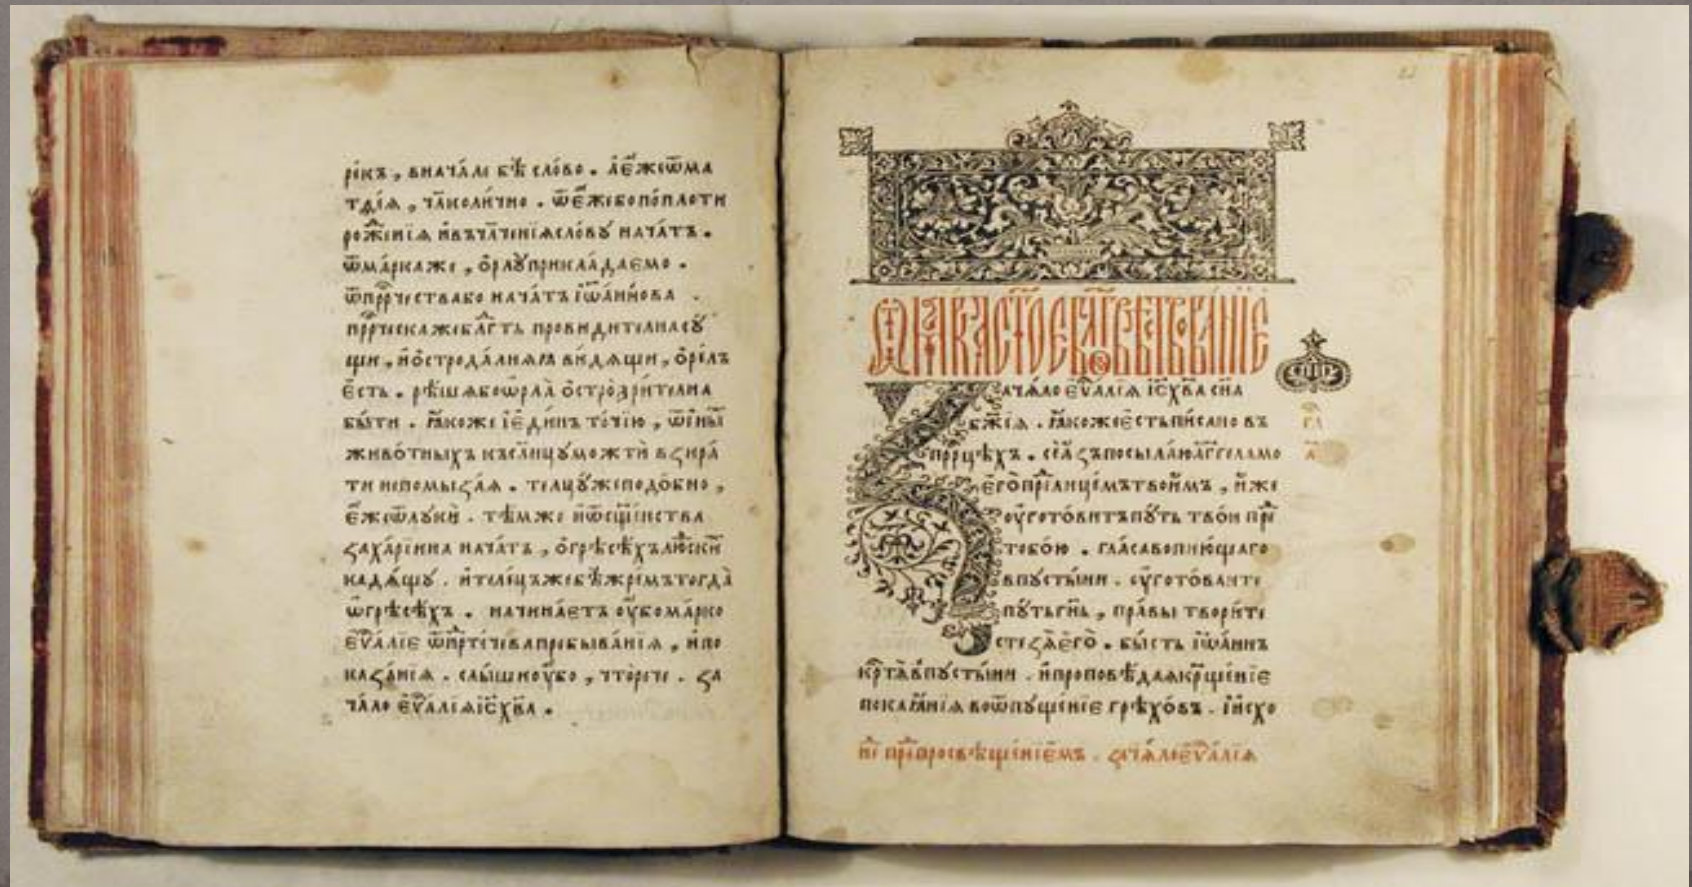 ре́къ, внача́ле бѣ̀ сло́во. а҆е҆́жеѿма
тѳе́я, чл҃коли́чно. ѿе҆́жебопопло́ти
роже́нїя и҆въчл҃че́нїясло́вꙋ нача́тъ.
ѿма́ркаже, ѻ҆рлꙋ̀прикла́даемо.
ѿпррⷪ҇чествабо нача́тъ і҆ѡа́ннова.
прⷪ҇рческажебл҃гть прови́дителнасꙋ́
щи, и҆ѻ҆строда́лняꙗ ви́дящи, ѻ҆ре́лъ
є҆́сть. рѣ́шѧбоѡ҆рла̀ ѻ҆строзри́телна
бы́ти. ꙗ҆́коже і҆е҆ди́нъ то́чїю, ѿи҆ны́
живо́тныхъ къ сл҃нцꙋ мо́жти взира́
ти непомыза́я. телцꙋ́жеподо́бно,
є҆́жеѿлꙋкѝ. тѣ́мже и҆ѿсщ҃е́нства
заха́рїина нача́тъ, ѻ҆грѣсѣ́хъ лю́скі
кадѧ́щꙋ. и҆теле́цъжебѣ̀жре́мътогда̀
ѡ҆грѣсѣ́хъ. начина́етъ ᲂу҆́бома́рко
є҆ѵⷢ҇а́лїе ѿпрⷣте́чевапребыва́нїя, и҆по
каза́нїя. слы́шиᲂу҆́бо, чторече. за
ча́ло є҆ѵⷢ҇а́лїя і҆с҃х҃ва.
Ѿ ма́рка ст҃о́е бл҃говѣствова́нїе
Зача́ло є҆ѵⷢ҇а́лїя і҆с҃х҃ва сн҃а
бж҃їя. ꙗ҆́коже е҆́сть пи́сано въ
прⷪ҇рцѣхъ. се а҆́зъ посыла́ю а҆́гг҃ела мо
е҆го̀ преⷣ лице́мъ твои́мъ, и҆́же
ᲂу҆гото́витъ пꙋ́ть тво́и преⷣ
тобо́ю. гла́съ вопию́щаго
впꙋсты́ни. ᲂу҆гото́ваите
пꙋ́ть гн҃ь, пра́вы твори́те
стезѧ̀ е҆го̀. бы́сть і҆ѡа́ннъ
крⷭ҇тѧ̀ впꙋсты́ни. и҆проповѣ́дая крⷳ҇щенїе
покаꙗ́нїя воѿпꙋще́нїе грѣхо́въ. и҆и҆схо
гл҃
а҃
неⷣ преⷣ просвѣще́нїемъ. зача́ло є҆ѵⷢ҇а́лїя